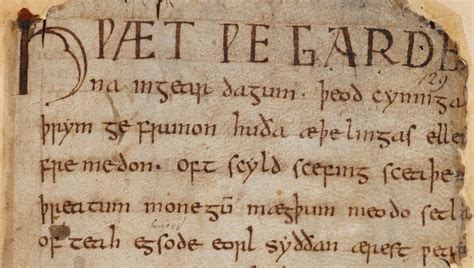 HǷÆT ǷE GARDE
na ingear dagum. þeod cyninga
þrym ge frunon huða æþelingas elle
fre medon. oft scyld scefing sceaþe
þreatum monegū mægþum meodo setla
of teah egsode eorl syððan ærest ƿea